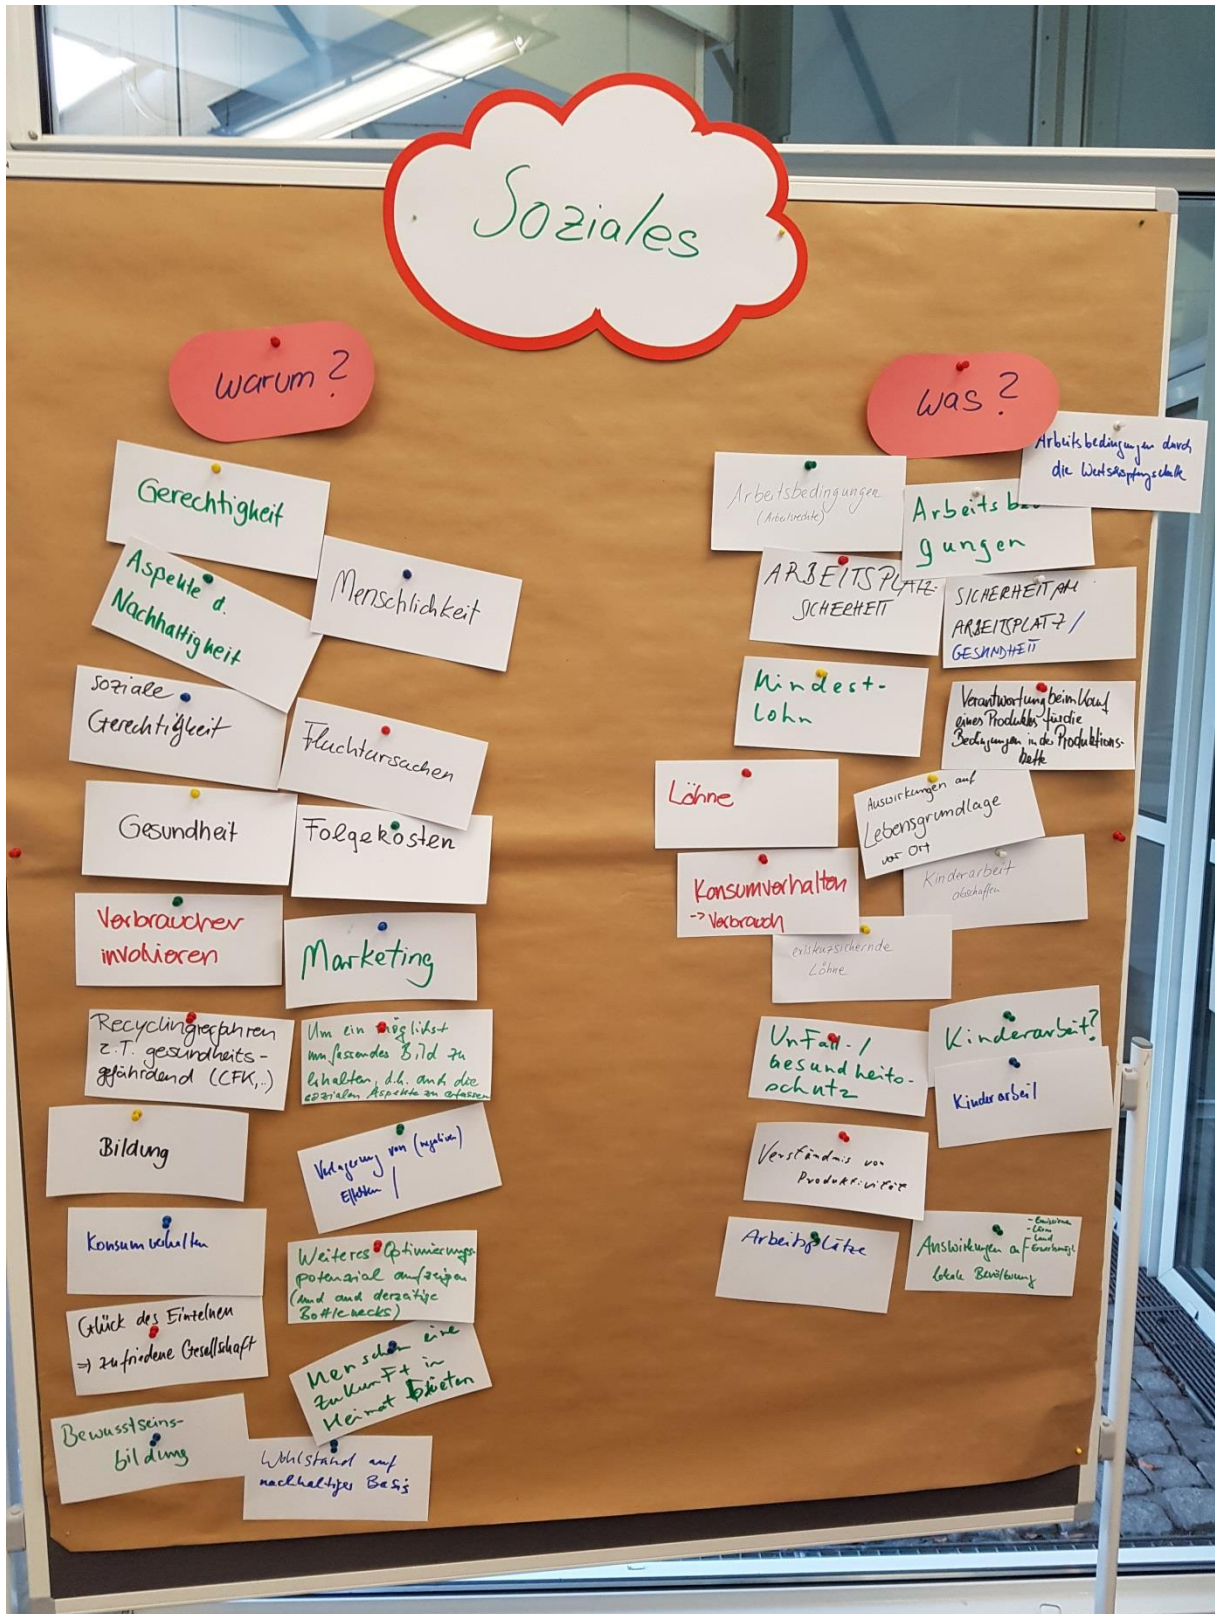 Soziales
warum?
Gerechtigkeit
Menschlichkeit
Aspekte d.
Nachhaltigkeit
Soziale
Gerechtigkeit
Fluchtursachen
Gesundheit
Folgekosten
Verbraucher
involvieren
Marketing
Recyclingverfahren
z.T. gesundheits-
gefährdend (CFK,..)
Um ein möglichst
umfassendes Bild zu
erhalten, d.h. auch die
sozialen Aspekte zu erfassen
Bildung
Verlagerung von (negativen)
Effekten /
Konsumverhalten
Weiteres Optimierungs-
potenzial aufzeigen
(und auch derzeitige
Bottlenecks)
Glück des Einzelnen
=> zufriedene Gesellschaft
Menschen eine
Zukunft in
Heimat bieten
Bewusstseins-
bildung
Wohlstand auf
nachhaltiger Basis
was?
Arbeitsbedingungen durch
die Wertschöpfungskette
Arbeitsbedingungen
(Arbeitsrechte)
Arbeitsbe
gungen
ARBEITSPLATZ-
SICHERHEIT
SICHERHEIT AM
ARBEITSPLATZ /
GESUNDHEIT
Mindest-
lohn
Verantwortung beim Kauf
eines Produktes für die
Bedingungen in der Produktions-
kette
Löhne
Auswirkungen auf
Lebensgrundlage
vor Ort
Konsumverhalten
-> Verbrauch
Kinderarbeit
abschaffen
existenzsichernde
Löhne
Unfall-/
Gesundheits-
schutz
Kinderarbeit?
Kinderarbeit
Verständnis von
Produktivität
Arbeitsplätze
Auswirkungen auf
- Emissionen
- Lärm
- Land
lokale Bevölkerung